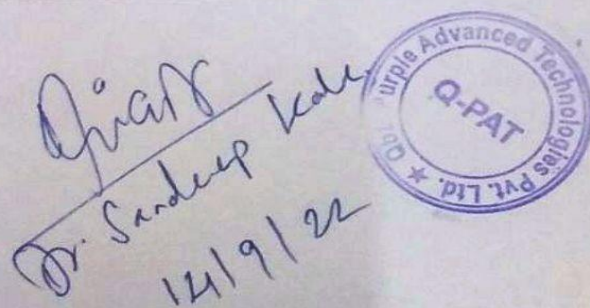 Dr. Sandeep Kale
14/9/22
Purple Advanced Technologies Pvt. Ltd. ★
Q-PAT